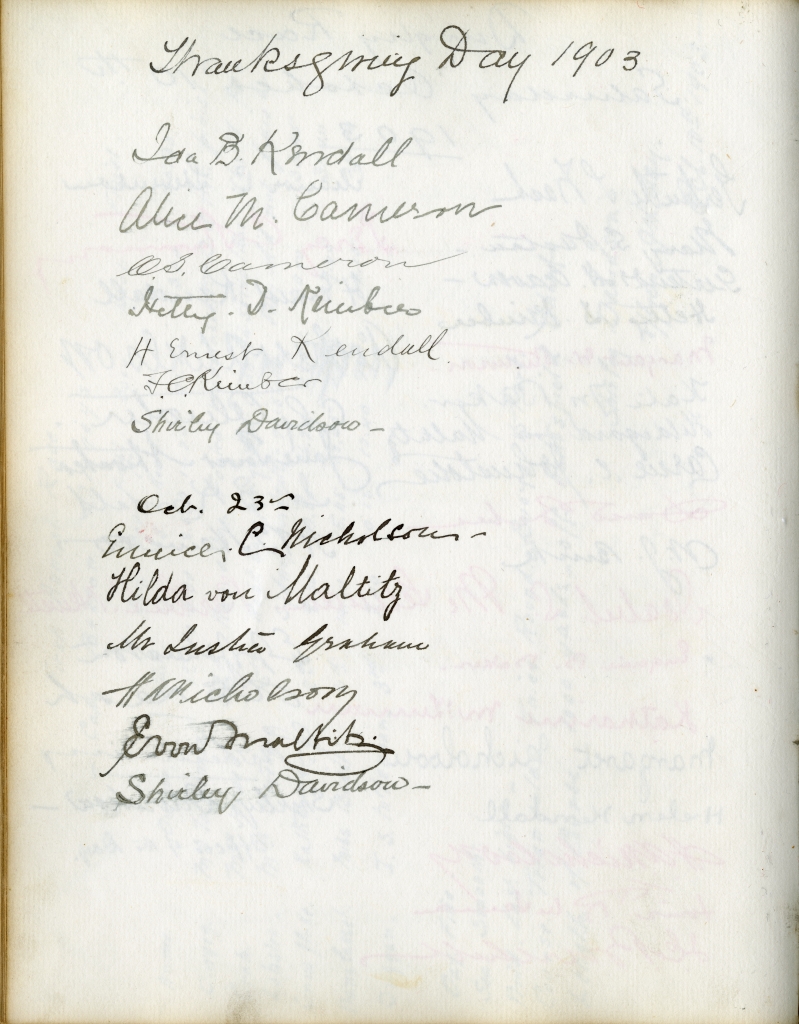 Thanksgiving Day 1903
Ida B. Kendall
Alice M. Cameron
C.S. Cameron
Hetty. D. Kimber
H Ernest Kendall
F.C. Kimber
Shirley Davidson -
Oct. 23rd
Eunice. C Nicholson -
Hilda von Maltitz
Mr Justice Graham
H Nicholson
E von Maltitz.
Shirley Davidson -